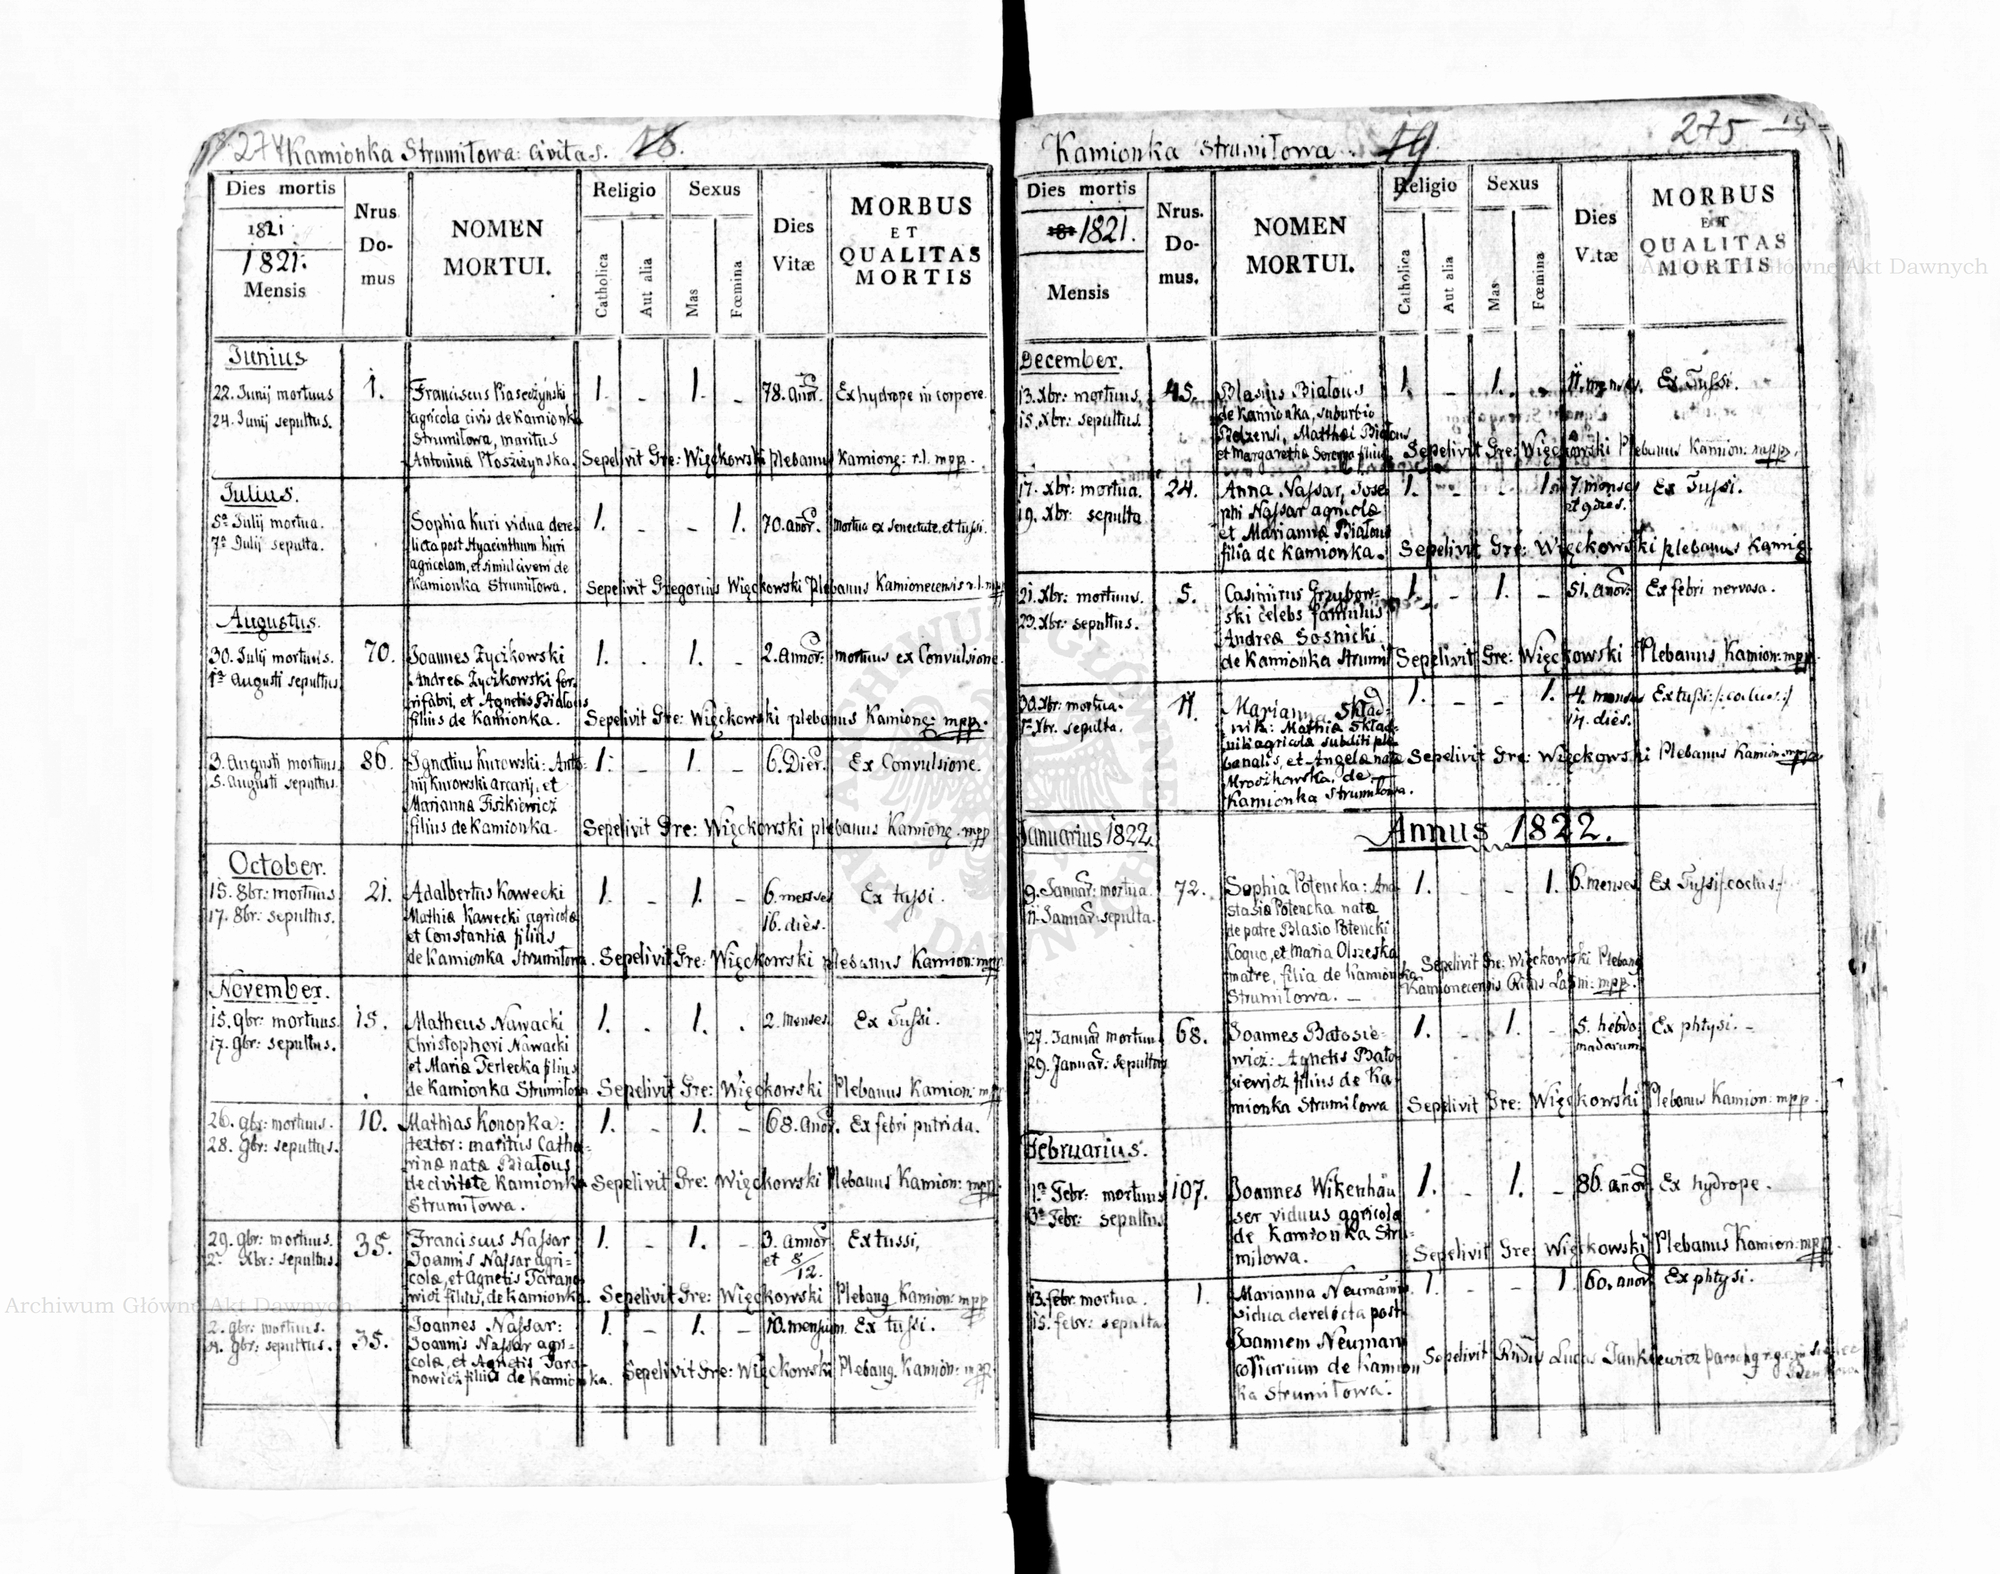 274 Kamionka Strumiłowa civitas. 18.
Dies mortis
1821
1821.
Mensis
Nrus
Do-
mus
NOMEN
MORTUI.
Religio
Catholica
Aut alia
Sexus
Mas
Fœmina
Dies
Vitæ
MORBUS
ET
QUALITAS
MORTIS
Junius
22. Junij mortuus 1. Franciscus Piaseczyński 1. - 1. - 78. añor. Ex hydrope in corpore.
24. Junij sepultus. agricola civis de Kamionka
Strumiłowa, maritus
Antonina Płoszczynska. Sepelivit Gre: Więckowski plebanus Kamionę: r.l. mpp.
Julius.
5ª Julij mortua. Sophia Kuri vidua dere 1. - - 1. 70. añor. mortua ex senectute, et tussi.
7ª Julij sepulta. licta post Hyacinthum Kuri
agricolam, et simul civem de
Kamionka Strumiłowa. Sepelivit Gregorius Więckowski Plebanus Kamionecensis r.l. mpp
Augustus.
30. Julij mortuus. 70. Joannes Życikowski 1. - 1. - 2. Annor: mortuus ex Convulsione.
1ª Augusti sepultus. Andreæ Życikowski fer-
rifabri, et Agnetis Białous
filius de Kamionka. Sepelivit Gre: Więckowski plebanus Kamionę: mpp.
3. Augusti mortuus. 86. Ignatius Kurowski: Anto- 1. - 1. - 6. Dier. Ex Convulsione.
5. Augusti sepultus. nij Kurowski arcarij, et
Marianna Fiszkiewicz
filius de Kamionka. Sepelivit Gre: Więckowski plebanus Kamionę. mpp
October.
15. 8br: mortuus 21. Adalbertus Kawecki 1. - 1. - 6. menses Ex tussi.
17. 8br: sepultus. Mathiæ Kawecki agricolæ 16. dies.
et Constantiæ filius
de Kamionka Strumiłowa. Sepelivit Gre: Więckowski plebanus Kamion: mpp
November.
15. 9br: mortuus. 15. Matheus Nawacki 1. - 1. - 2. menses Ex Tussi.
17. 9br: sepultus. Christophori Nawacki
et Mariæ Terlecka filius
de Kamionka Strumiłowa Sepelivit Gre: Więckowski Plebanus Kamion: mpp
26. 9br: mortuus. 10. Mathias Konopka: 1. - 1. - 68. Añor. Ex febri putrida.
28. 9br: sepultus. textor: maritus Catha-
rinæ natæ Białous
de civitate Kamionka Sepelivit Gre: Więckowski Plebanus Kamion: mpp
Strumiłowa.
29. 9br: mortuus. 35. Franciscus Nassar 1. - 1. - 3. Annor Ex tussi,
2ª Xbr: sepultus. Joannis Nassar agri- et 8/12.
colæ, et Agnetis Tarano
wicz filius, de Kamionka. Sepelivit Gre: Więckowski Pleban9 Kamion: mpp
2. 9br: mortuus. 35. Joannes Nassar: 1. - 1. - 10. mensium. Ex tussi.
4. 9br: sepultus. Joannis Nassar agri-
colæ, et Agnetis Tara-
nowicz filius de Kamionka. Sepelivit Gre: Więckowski Pleban9. Kamion: mpp
Kamionka Strumiłowa. 19. 275
Dies mortis
181 1821.
Mensis
Nrus.
Do-
mus.
NOMEN
MORTUI.
Religio
Catholica
Aut alia
Sexus
Mas
Fœmina
Dies
Vitæ
MORBUS
ET
QUALITAS
MORTIS
December.
13. Xbr: mortuus, 45. Blasius Białous 1. - 1. - 11. menses. Ex Tussi.
15. Xbr: sepultus. de Kamionka, suburbio
Belzensi, Matthæi Białous
et Margaretha filius Sepelivit Gre: Więckowski Plebanus Kamion: mpp.
17. Xbr: mortua. 24. Anna Nassar, Jose- 1. - - 1. 7. menses Ex Tussi.
19. Xbr: sepulta phi Nassar agricolæ et 9 dies.
et Marianna Białous
filia de Kamionka. Sepelivit Gre: Więckowski plebanus Kamię.
21. Xbr: mortuus. 5. Casimirus Grzybow- 1. - 1. - 51. añor: Ex febri nervosa.
23. Xbr: sepultus. ski celebs famulus
Andreæ Sosnicki
de Kamionka Strumił Sepelivit Gre: Więckowski Plebanus Kamion: mpp.
30. Xbr: mortua. 11. Marianna Skład- 1. - - 1. 4. menses Ex tussi
1ª Xbr. sepulta. nik: Mathiæ Skład- 14. dies.
nik agricolæ subditi ple-
banalis, et Angelæ natæ Sepelivit Gre: Więckowski Plebanus Kamion. mpp
Mrozikowska, de
Kamionka Strumiłowa.
Januarius 1822. Annus 1822.
9. Januar: mortua 72. Sophia Potencka: Ana- 1. - - 1. 6. menses Ex Tussi
11. Januar: sepulta. stasiæ Potencka natæ
de patre Blasio Potencki
Coquo, et Maria Olszeska
matre, filia de Kamionka Sepelivit Gre: Więckowski Pleban9
Strumiłowa. - Kamionecensis Ritus Latini: mpp.
27. Januar mortuus 68. Joannes Batosie- 1. - 1. - 5. hebdo- Ex phtysi. -
29. Januar: sepultus wicz: Agnetis Bato- madarum
siewicz filius de Ka-
mionka Strumilowa Sepelivit Gre: Więckowski Plebanus Kamion: mpp.
Februarius.
1ª Febr: mortuus 107. Joannes Wikenhäu 1. - 1. - 86. añor. Ex hydrope.
3ª Febr: sepultus ser viduus agricola
de Kamionka Stru-
milowa. Sepelivit Gre Więckowski Plebanus Kamion: mpp.
13. febr: mortua. 1. Marianna Neumann 1. - - 1. 60. añor Ex phtysi.
15. febr: sepulta vidua derelicta post
Joannem Neuman
de Kamion Sepelivit Rndus Lucas Jankiewicz paroch9 r.g.
ka Strumiłowa.
Archiwum Główne Akt Dawnych
Archiwum Główne Akt Dawnych
ARCHIWUM GŁÓWNE AKT DAWNYCH